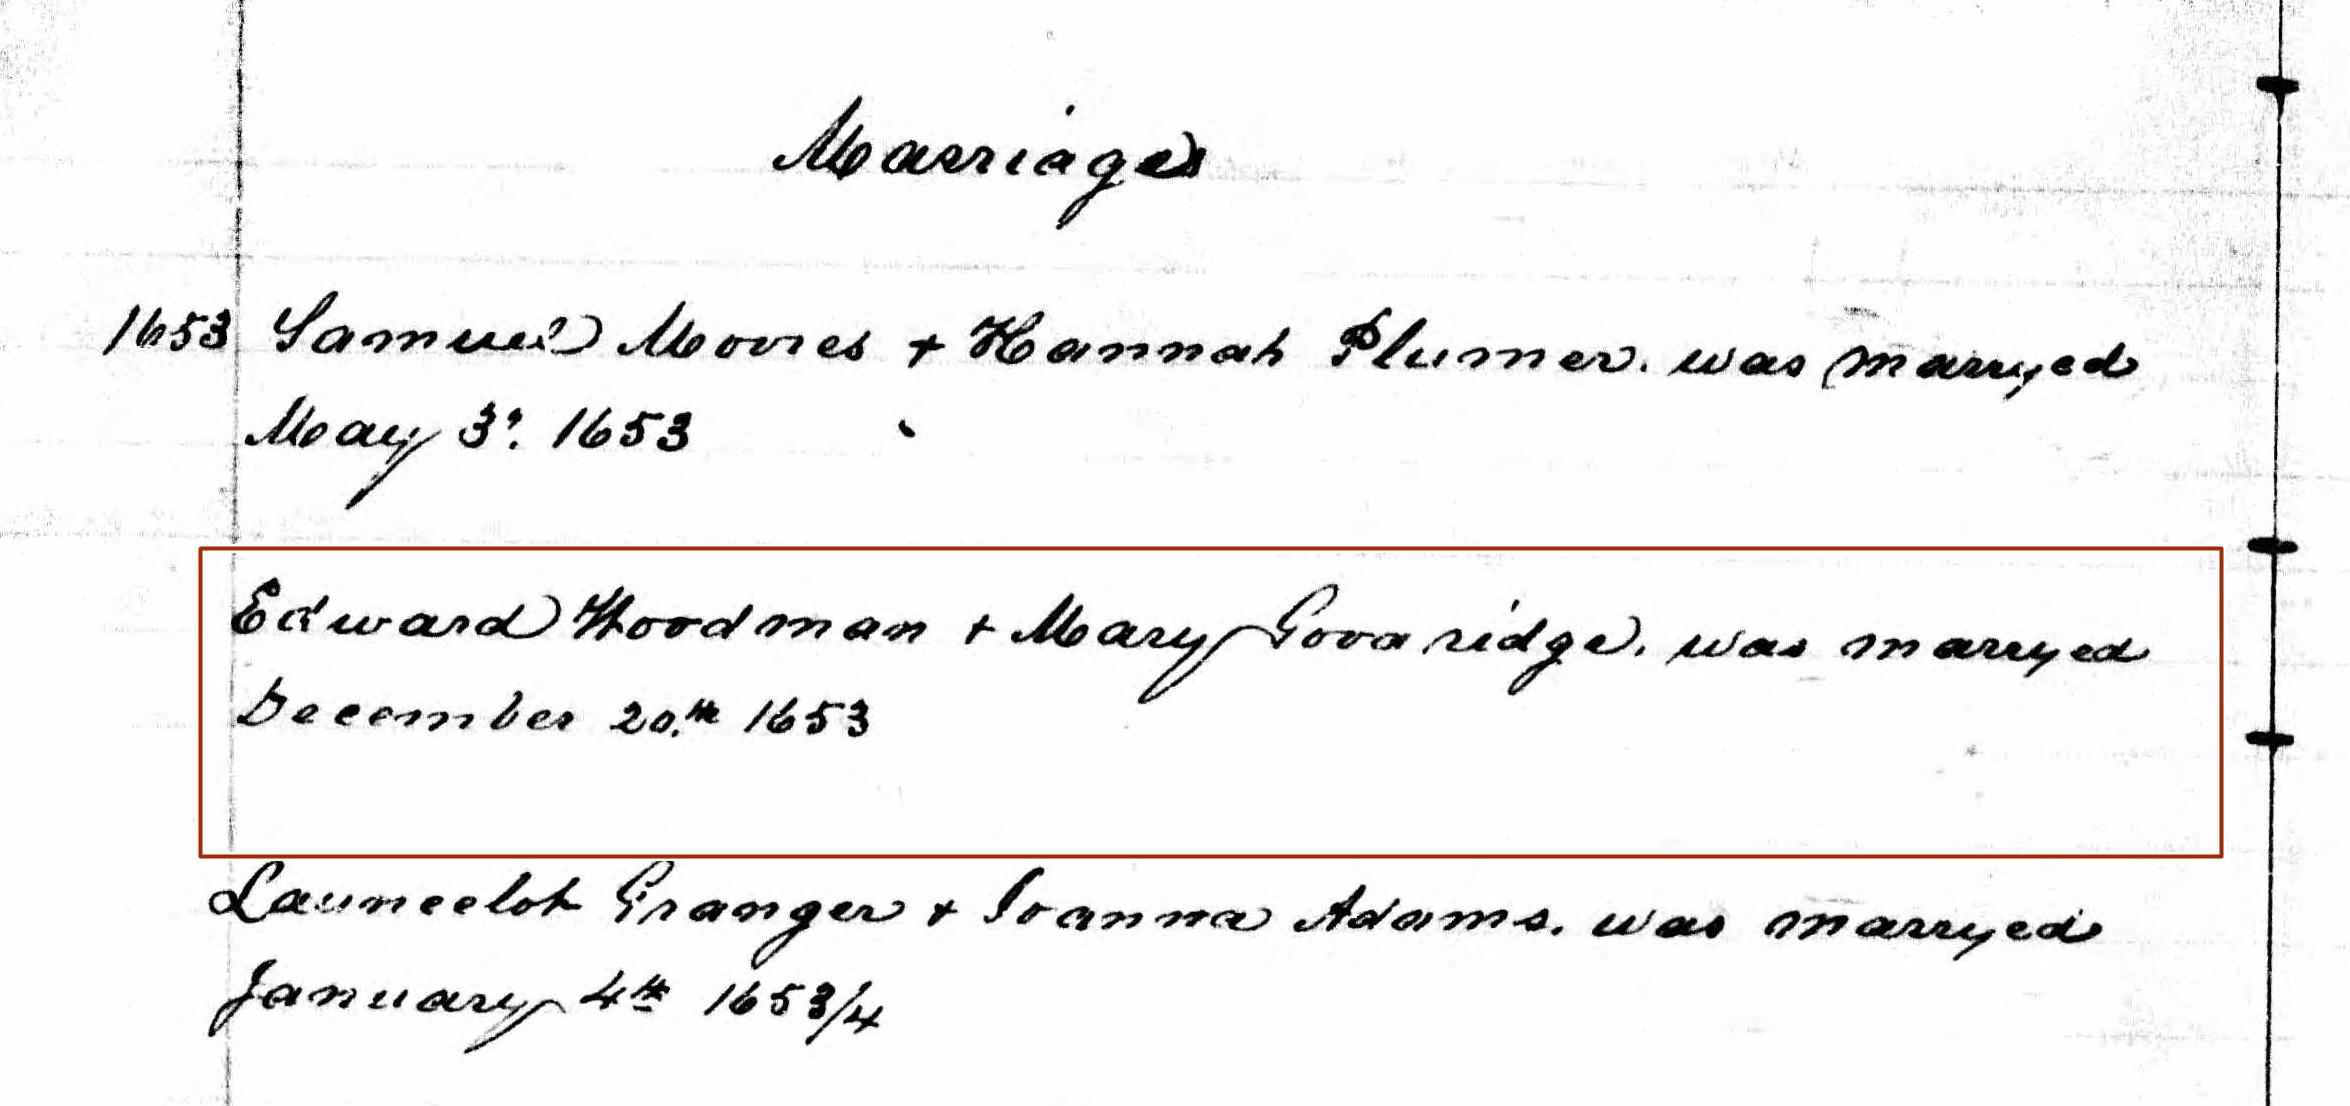 Marriages
1653 Samuel Moores + Hannah Plumer. was marryed
May 3d. 1653
Edward Woodman + Mary Goodridge. was marryed
December 20.th 1653
Launcelot Granger + Joanna Adams. was marryed
January 4th 1653/4